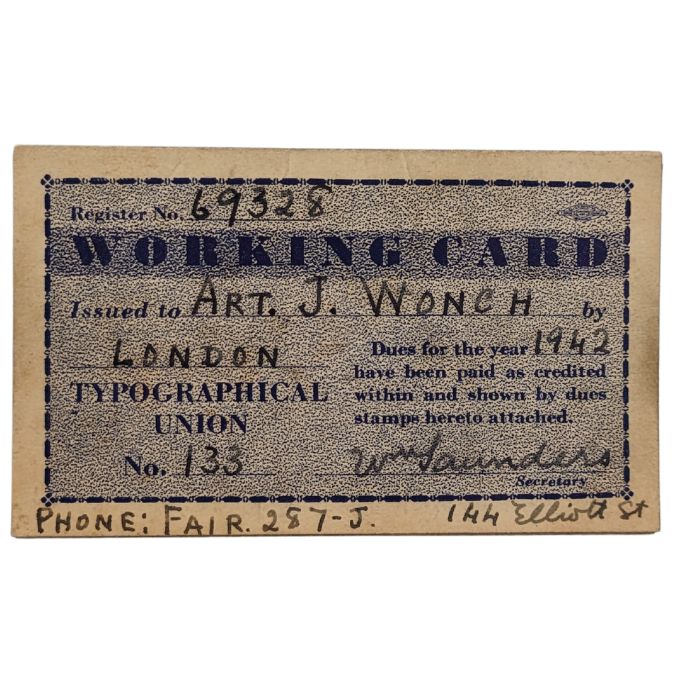 Register No. 69328
WORKING CARD
Issued to ART. J. WONCH by
LONDON
TYPOGRAPHICAL
UNION
No. 133
Dues for the year 1942
have been paid as credited
within and shown by dues
stamps hereto attached.
Wm Saunders
Secretary
PHONE: FAIR. 287-J. 144 Elliott St